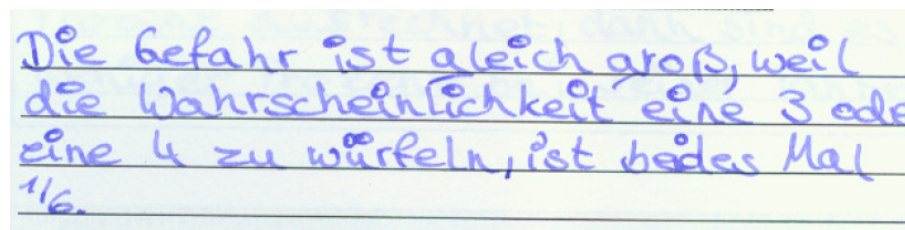 Die Gefahr ist gleich groß, weil
die Wahrscheinlichkeit eine 3 ode
eine 4 zu würfeln, ist beides Mal
1/6.